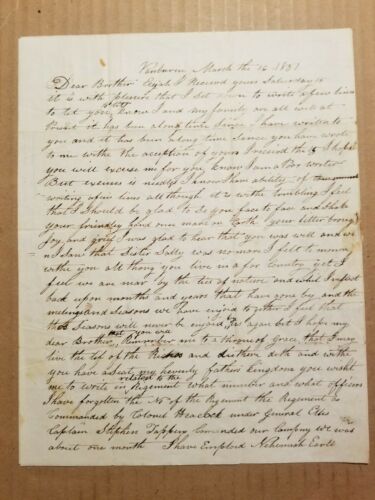 Vanburen March the 16 1851
Dear Brother Elijah I Receivd yours Saturday 15
it is with plesure that I set down to write a few lines
to let you know I and my family are all well at
Present it has bin along time since I have writen to
you and it has bin along time sience you have wrote
to me withe the acception of yours I receivd the 15 I hope
you will excuse me for you know I am a Poor writer
But excuses is needless I know them ability of
writing afew lines all though it is withe trembling I feel
that I should be glad to See you face to face and Shake
your friendley hand once more on Earth your letter brong
Joy, and grief I was glad to hear that you was well and
Saw that Sister Sally was no more I felt to morn
withe you all thoug you live in a far Country yet I
feel we are near by the ties of nature and whil I reflect
back upon months and years that have gone by and the
meetings and Seasons we have enjoyd to gither I feel that
thos Seasons will never be enjoyd by us again but I hope my
dear Brother that you will Remember me to a throne of Grace that I may
live the life of the and die there deth and withe
you have a seat my hevenly father kingdome you wisht
me to write related to the Regiment what number and what officers
I have forgotten the No of the Regiment the Regiment is
Commanded by Colonel Heacock under General
Captain Stephen Tappen Comanded our Company we was
about one month I have Emploid Nehemiah Earll